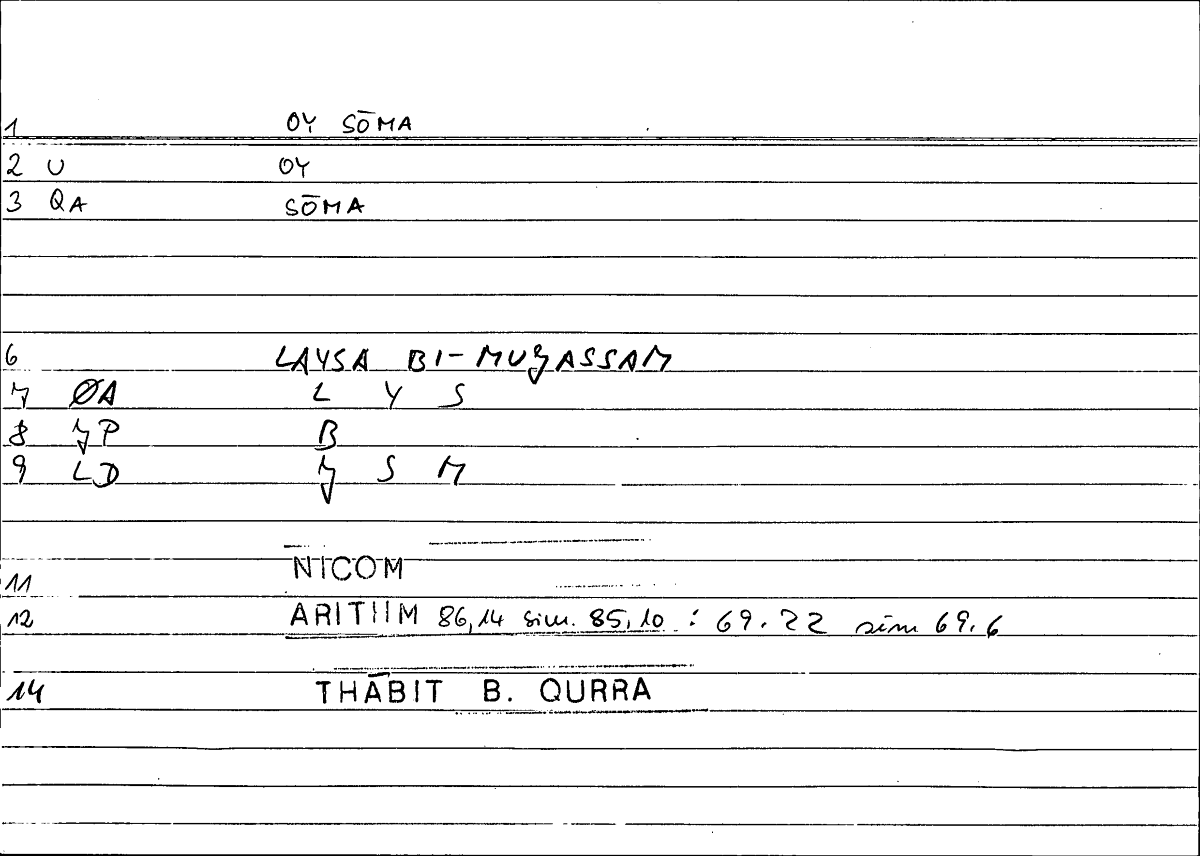 1 OY SŌMA
2 U OY
3 QA SŌMA
6 LAYSA BI-MUJASSAM
7 ØA L Y S
8 JP B
9 LD J S M
11 NICOM
12 ARITHM 86,14 sim. 85,10 : 69.22 sim 69.6
14 THĀBIT B. QURRA